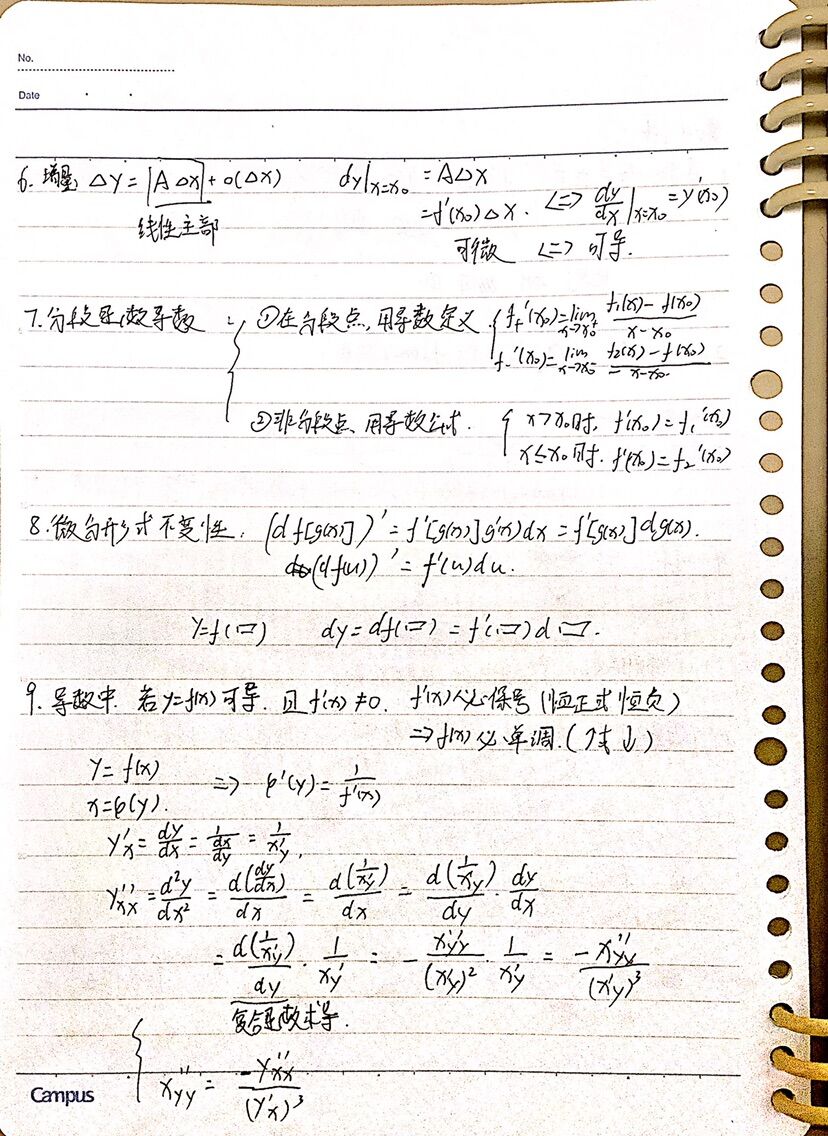 No.
Date
6. 增量: ΔY = AΔx + o(Δx)  dy|x=x₀ = AΔx
线性主部  = f'(x₀)Δx. <=> dy/dx|x=x₀ = y'(x₀)
可微 <=> 可导.
7. 分段函数导数: { ①在分段点, 用导数定义 { f₊'(x₀) = lim x→x₀⁺ (f₁(x) - f(x₀))/(x - x₀)
f₋'(x₀) = lim x→x₀⁻ (f₂(x) - f(x₀))/(x - x₀)
②非分段点、用导数公式. { x>x₀时, f'(x₀) = f₁'(x₀)
x≤x₀时. f'(x₀) = f₂'(x₀)
8. 微分形式不变性. (d f[g(x)])' = f'[g(x)]g'(x)dx = f'[g(x)]dg(x).
(df(u))' = f'(u)du.
Y=f(□)  dy = df(□) = f'(□)d□.
9. 导数中. 若y=f(x)可导. 且f'(x)≠0. f'(x)必保号(恒正或恒负)
=> f(x)必单调.(↑或↓)
Y = f(x)
x = φ(y). => φ'(y) = 1/f'(x)
Y'x = dy/dx = 1/(dx/dy) = 1/x'y,
Y''xx = d²y/dx² = d(dy/dx)/dx = d(1/x'y)/dx = d(1/x'y)/dy · dy/dx
= d(1/x'y)/dy · 1/x'y = - x''yy/(x'y)² · 1/x'y = -x''yy/(x'y)³
复合函数求导.
{ x''yy = -Y''xx/(Y'x)³
Campus